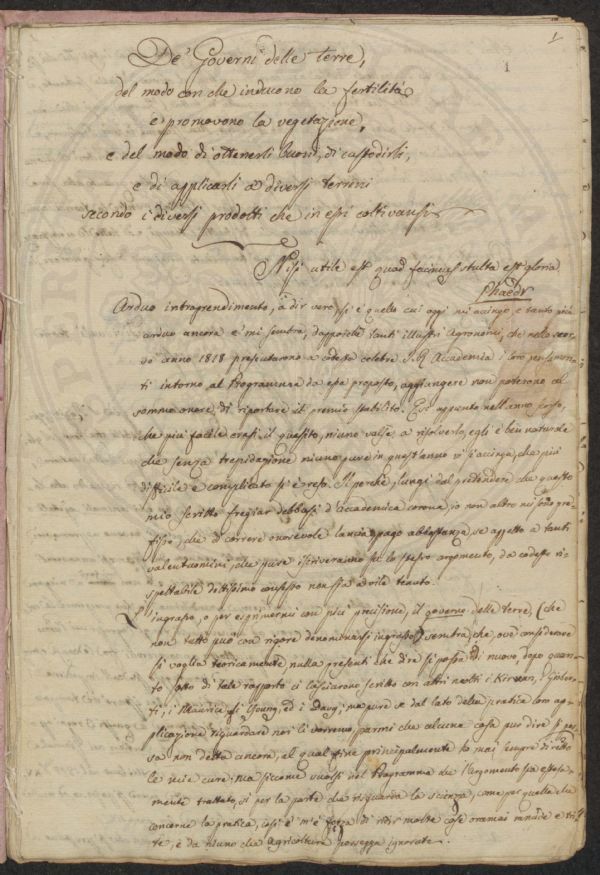 1
1
De' Governi delle terre,
del modo con che inducono la fertilità
e promovono la vegetazione,
e del modo di ottenerli buoni, di custodirli,
e di applicarli a' diversi terreni
secondo i diversi prodotti che in essi coltivansi
Nisi utile est quod facimus stulta est gloria
Phaedr
Arduo intraprendimento, a dir vero si è quello cui oggi mi accingo, e tanto più
arduo ancora e' mi sembra, dappoichè tanti illustri Agronomi, che nello scor-
so anno 1818 presentarono a codesta celebre I. R. Accademia i loro pensamen-
ti intorno al Programma da essa proposto, aggiungere non poterono al
sommo onore di riportare il premio stabilito. Essi appunto nell'anno scorso,
che più facile erasi il quesito, niuno valse a risolverlo, egli è ben naturale
che senza trepidazione niuno pure in quest'anno vi s'accinga, che più
difficile e complicato si è reso. Il perchè, lungi dal pretendere che questo
mio scritto fregiar debbasi d'accademica corona, io non altro mi sono pre-
fisso, che di correre onorevole lancia, pago abbastanza, se appetto a tanti
valentuomini, che pure scriveranno su lo stesso argomento, da codesto ris-
pettabile dottissimo consesso non sia a vile tenuto.
L'ingrasso, o per esprimermi con più precisione, il governo delle terre, (che
non tutto può con rigore denominarsi ingrasso) sembra, che ove considerare
si voglia teoricamente nulla presenti che dire si possa di nuovo, dopo quan-
to sotto di tale rapporto ci lasciarono scritto con altri molti i Kirwan,
i Maurice, gli Young, ed i Davy; ma pure se dal lato della pratica con ap-
plicazione riguardare noi li vorremo, parmi che alcuna cosa può dire si pos-
sa non detta ancora, al qual fine principalmente ho mai sempre diretto
le mie cure. Ma siccome vuolsi nel Programma che l'argomento sia estesa-
mente trattato, sì per la parte che risguarda la scienza, come per quella che
concerne la pratica, così è m'è forza di ridir molte cose oramai rancide e tri-
te, e da niuno che agricoltura professa ignorate.